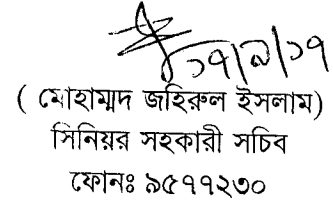 ১৭/৯/১৭
( মোহাম্মদ জহিরুল ইসলাম)
সিনিয়র সহকারী সচিব
ফোনঃ ৯৫৭৭২৩০